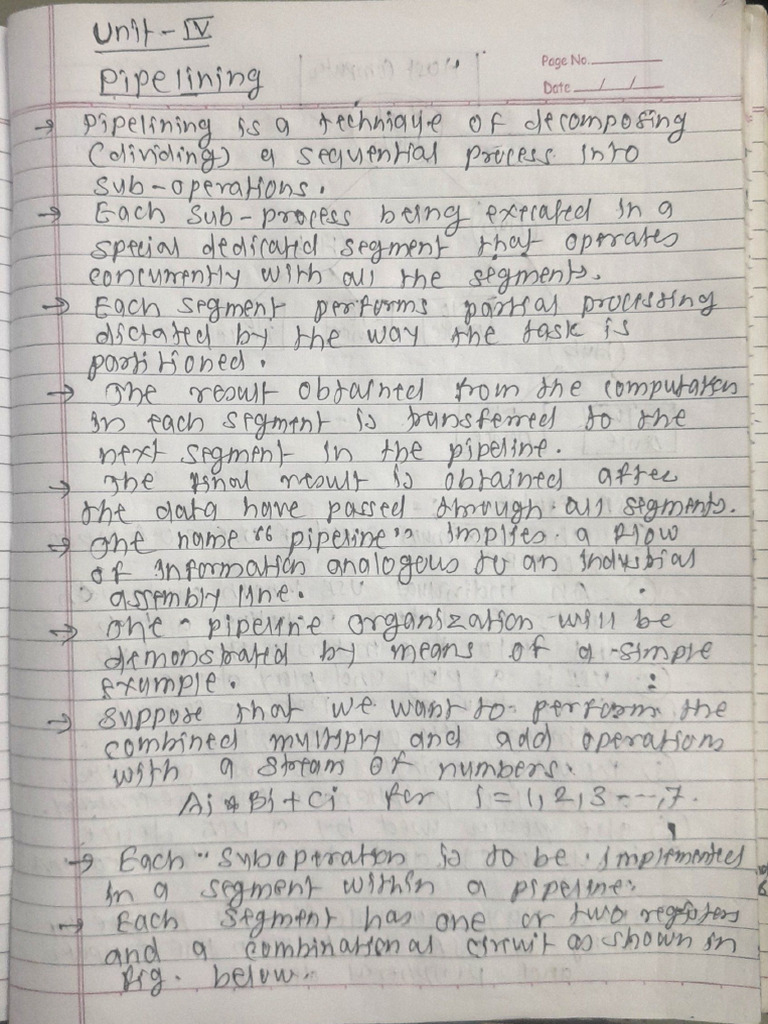 Unit - IV
Page No.
Pipelining
Date / /
→ Pipelining is a technique of decomposing
(dividing) a sequential process into
sub-operations.
→ Each sub-process being executed in a
special dedicated segment that operates
concurrently with all the segments.
→ Each segment performs partial processing
dictated by the way the task is
partitioned.
→ The result obtained from the computation
in each segment is transferred to the
next segment in the pipeline.
→ The final result is obtained after
the data have passed through all segments.
→ The name "pipeline" implies a flow
of information analogous to an industrial
assembly line.
→ The pipeline organization will be
demonstrated by means of a simple
example.
→ Suppose that we want to perform the
combined multiply and add operations
with a stream of numbers.
Ai * Bi + Ci for i = 1, 2, 3 ---, 7.
→ Each suboperation is to be implemented
in a segment within a pipeline.
→ Each segment has one or two registers
and a combinational circuit as shown in
fig. below.